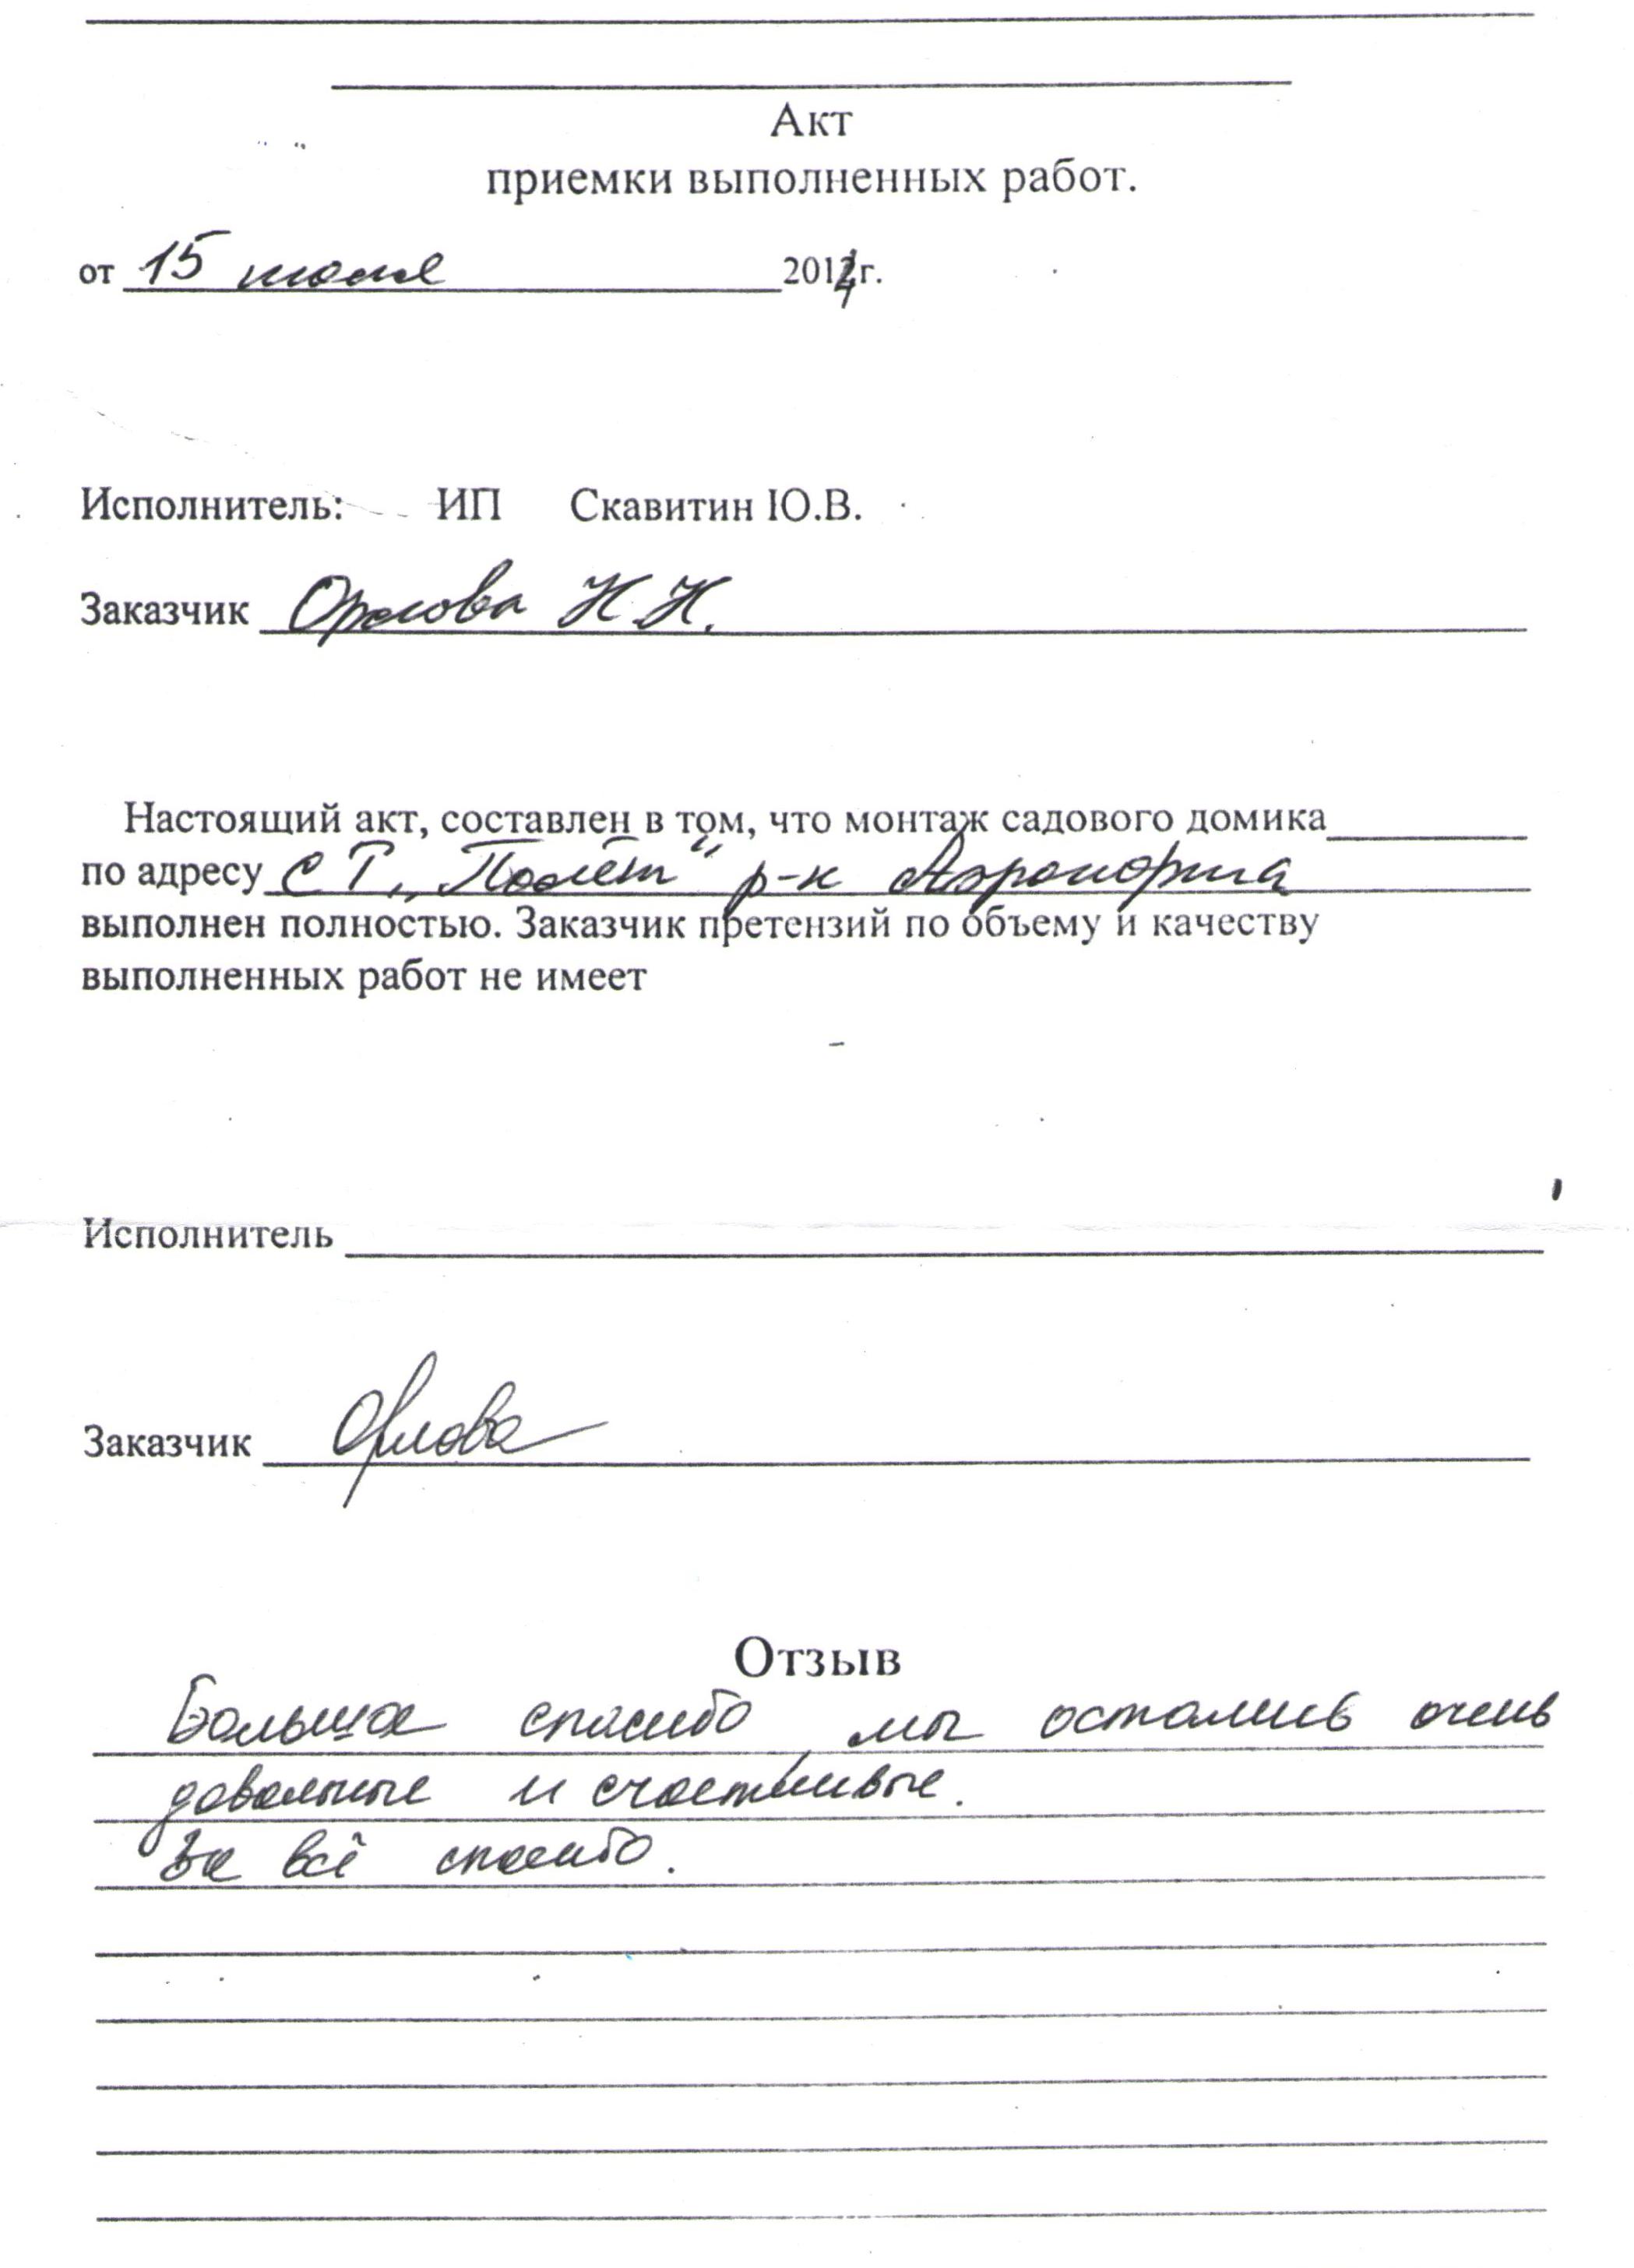 Акт
приемки выполненных работ.
от 15 июля 2014г.
Исполнитель: ИП Скавитин Ю.В.
Заказчик Орлова Н.Н.
Настоящий акт, составлен в том, что монтаж садового домика
по адресу СТ "Полёт" р-н Аэропорта
выполнен полностью. Заказчик претензий по объему и качеству
выполненных работ не имеет
Исполнитель
Заказчик Орлова
Отзыв
Большое спасибо, мы остались очень
довольные и счастливые.
За всё спасибо.